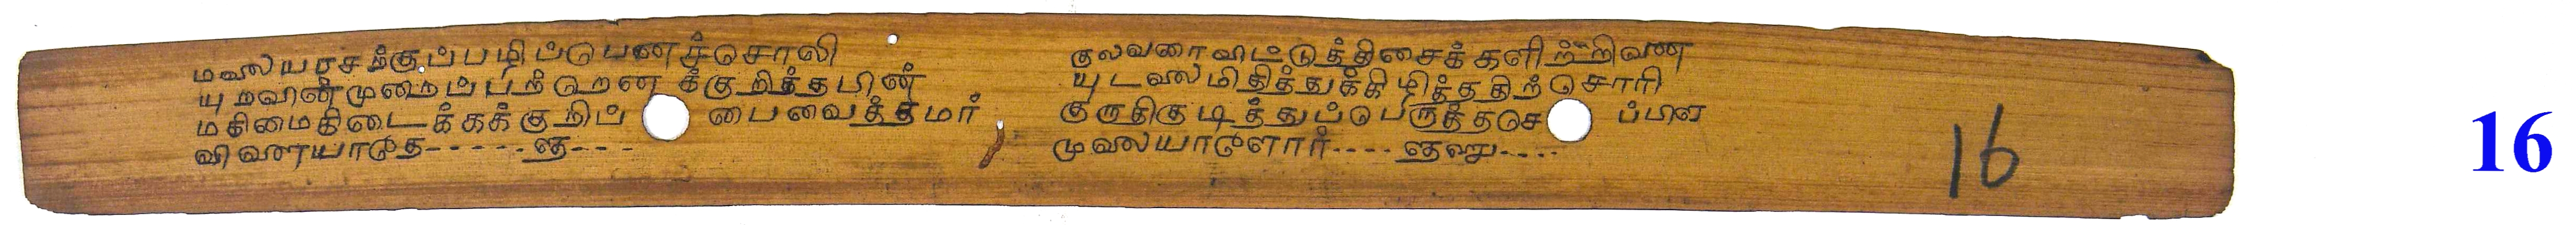 மலையரசற்குப்பழிப்பெனச்சொலி
யுமவன்முறைப்பற்றெனக்குறித்தபின்
மகிமைகிடைக்கக்குறிப் பைவைத்தமர்
குலவரைவிட்டுத்திசைக்களிற்றிவண
யுடலமிதித்துக்கிழித்ததிற்சொரி
குருதிகுடித்துப்பெருத்தசெ ப்பிள
முலையாளார்----
16
16